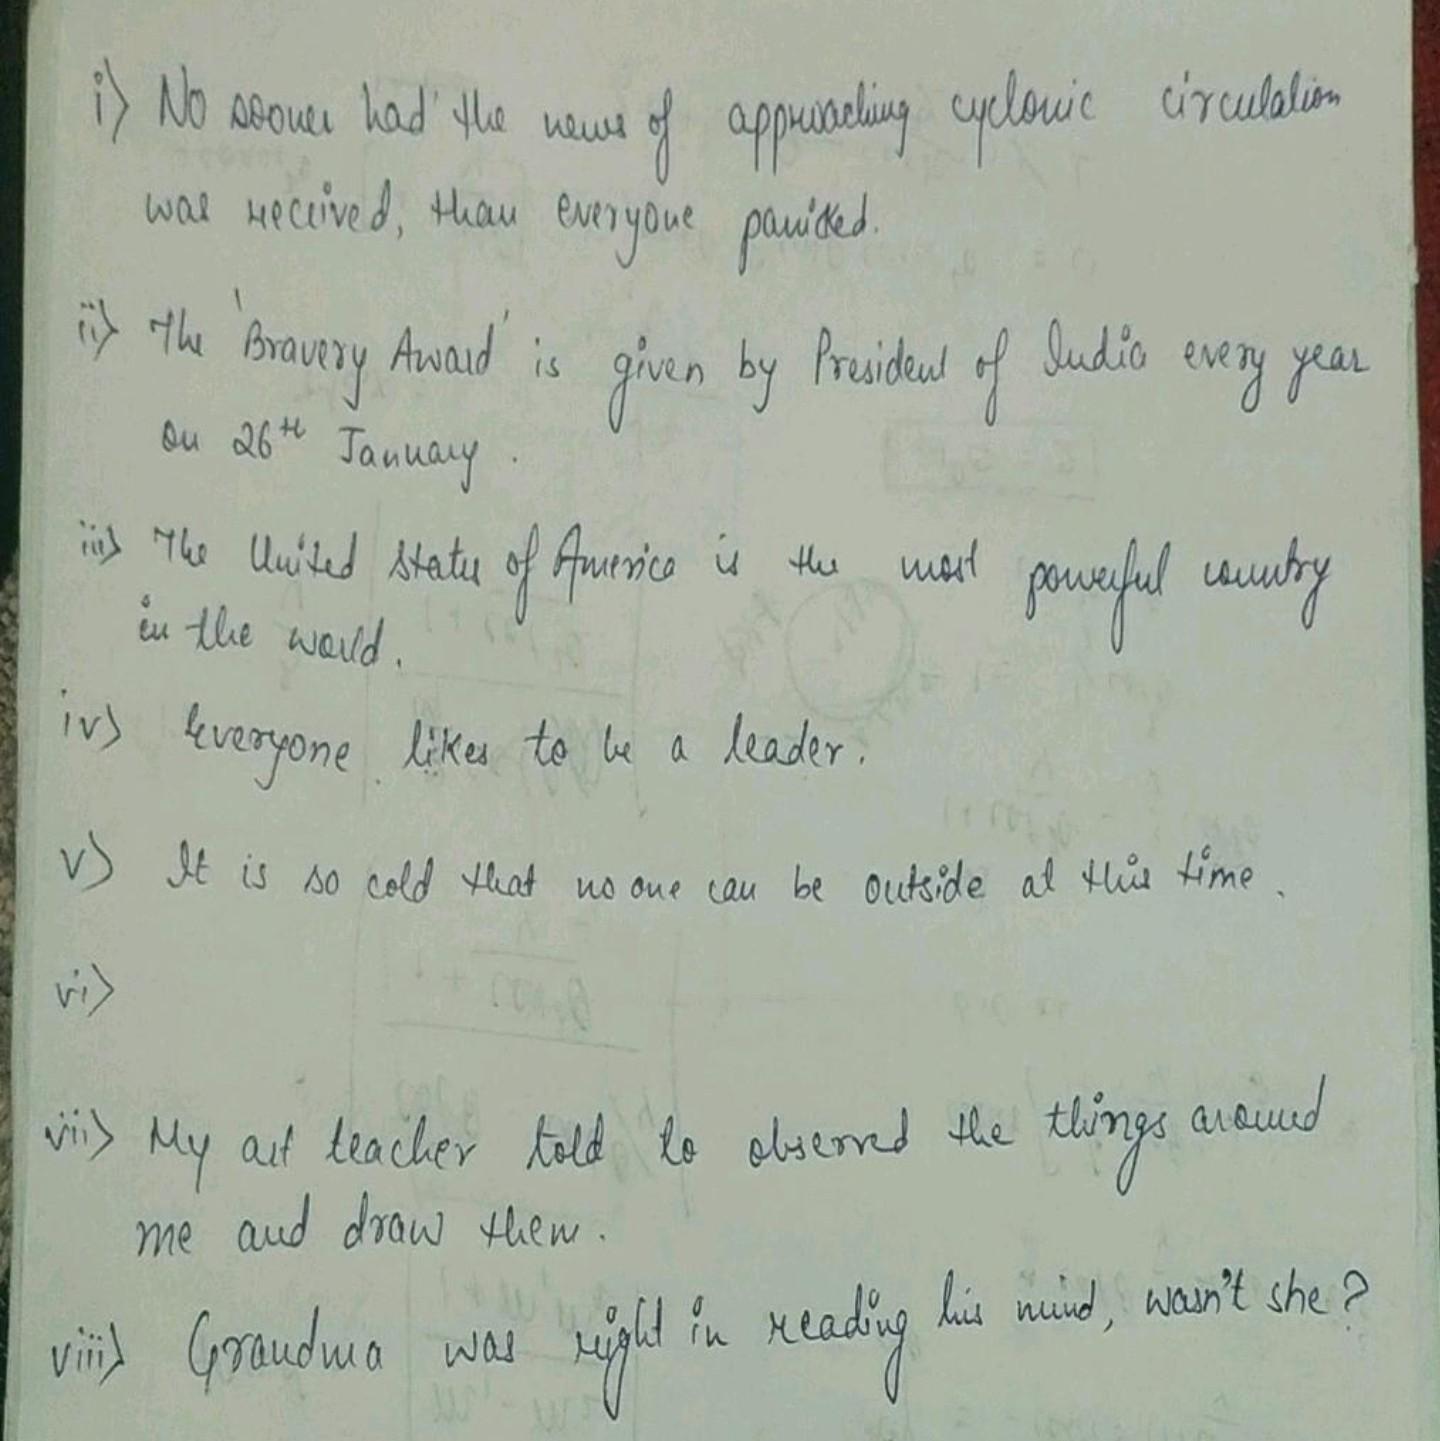 i) No sooner had the news of approaching cyclonic circulation
was received, than everyone panicked.
ii) The 'Bravery Award' is given by President of India every year
on 26th January.
iii) The United States of America is the most powerful country
in the world.
iv) Everyone likes to be a leader.
v) It is so cold that no one can be outside at this time.
vi)
vii) My art teacher told to observed the things around
me and draw them.
viii) Grandma was right in reading his mind, wasn't she?